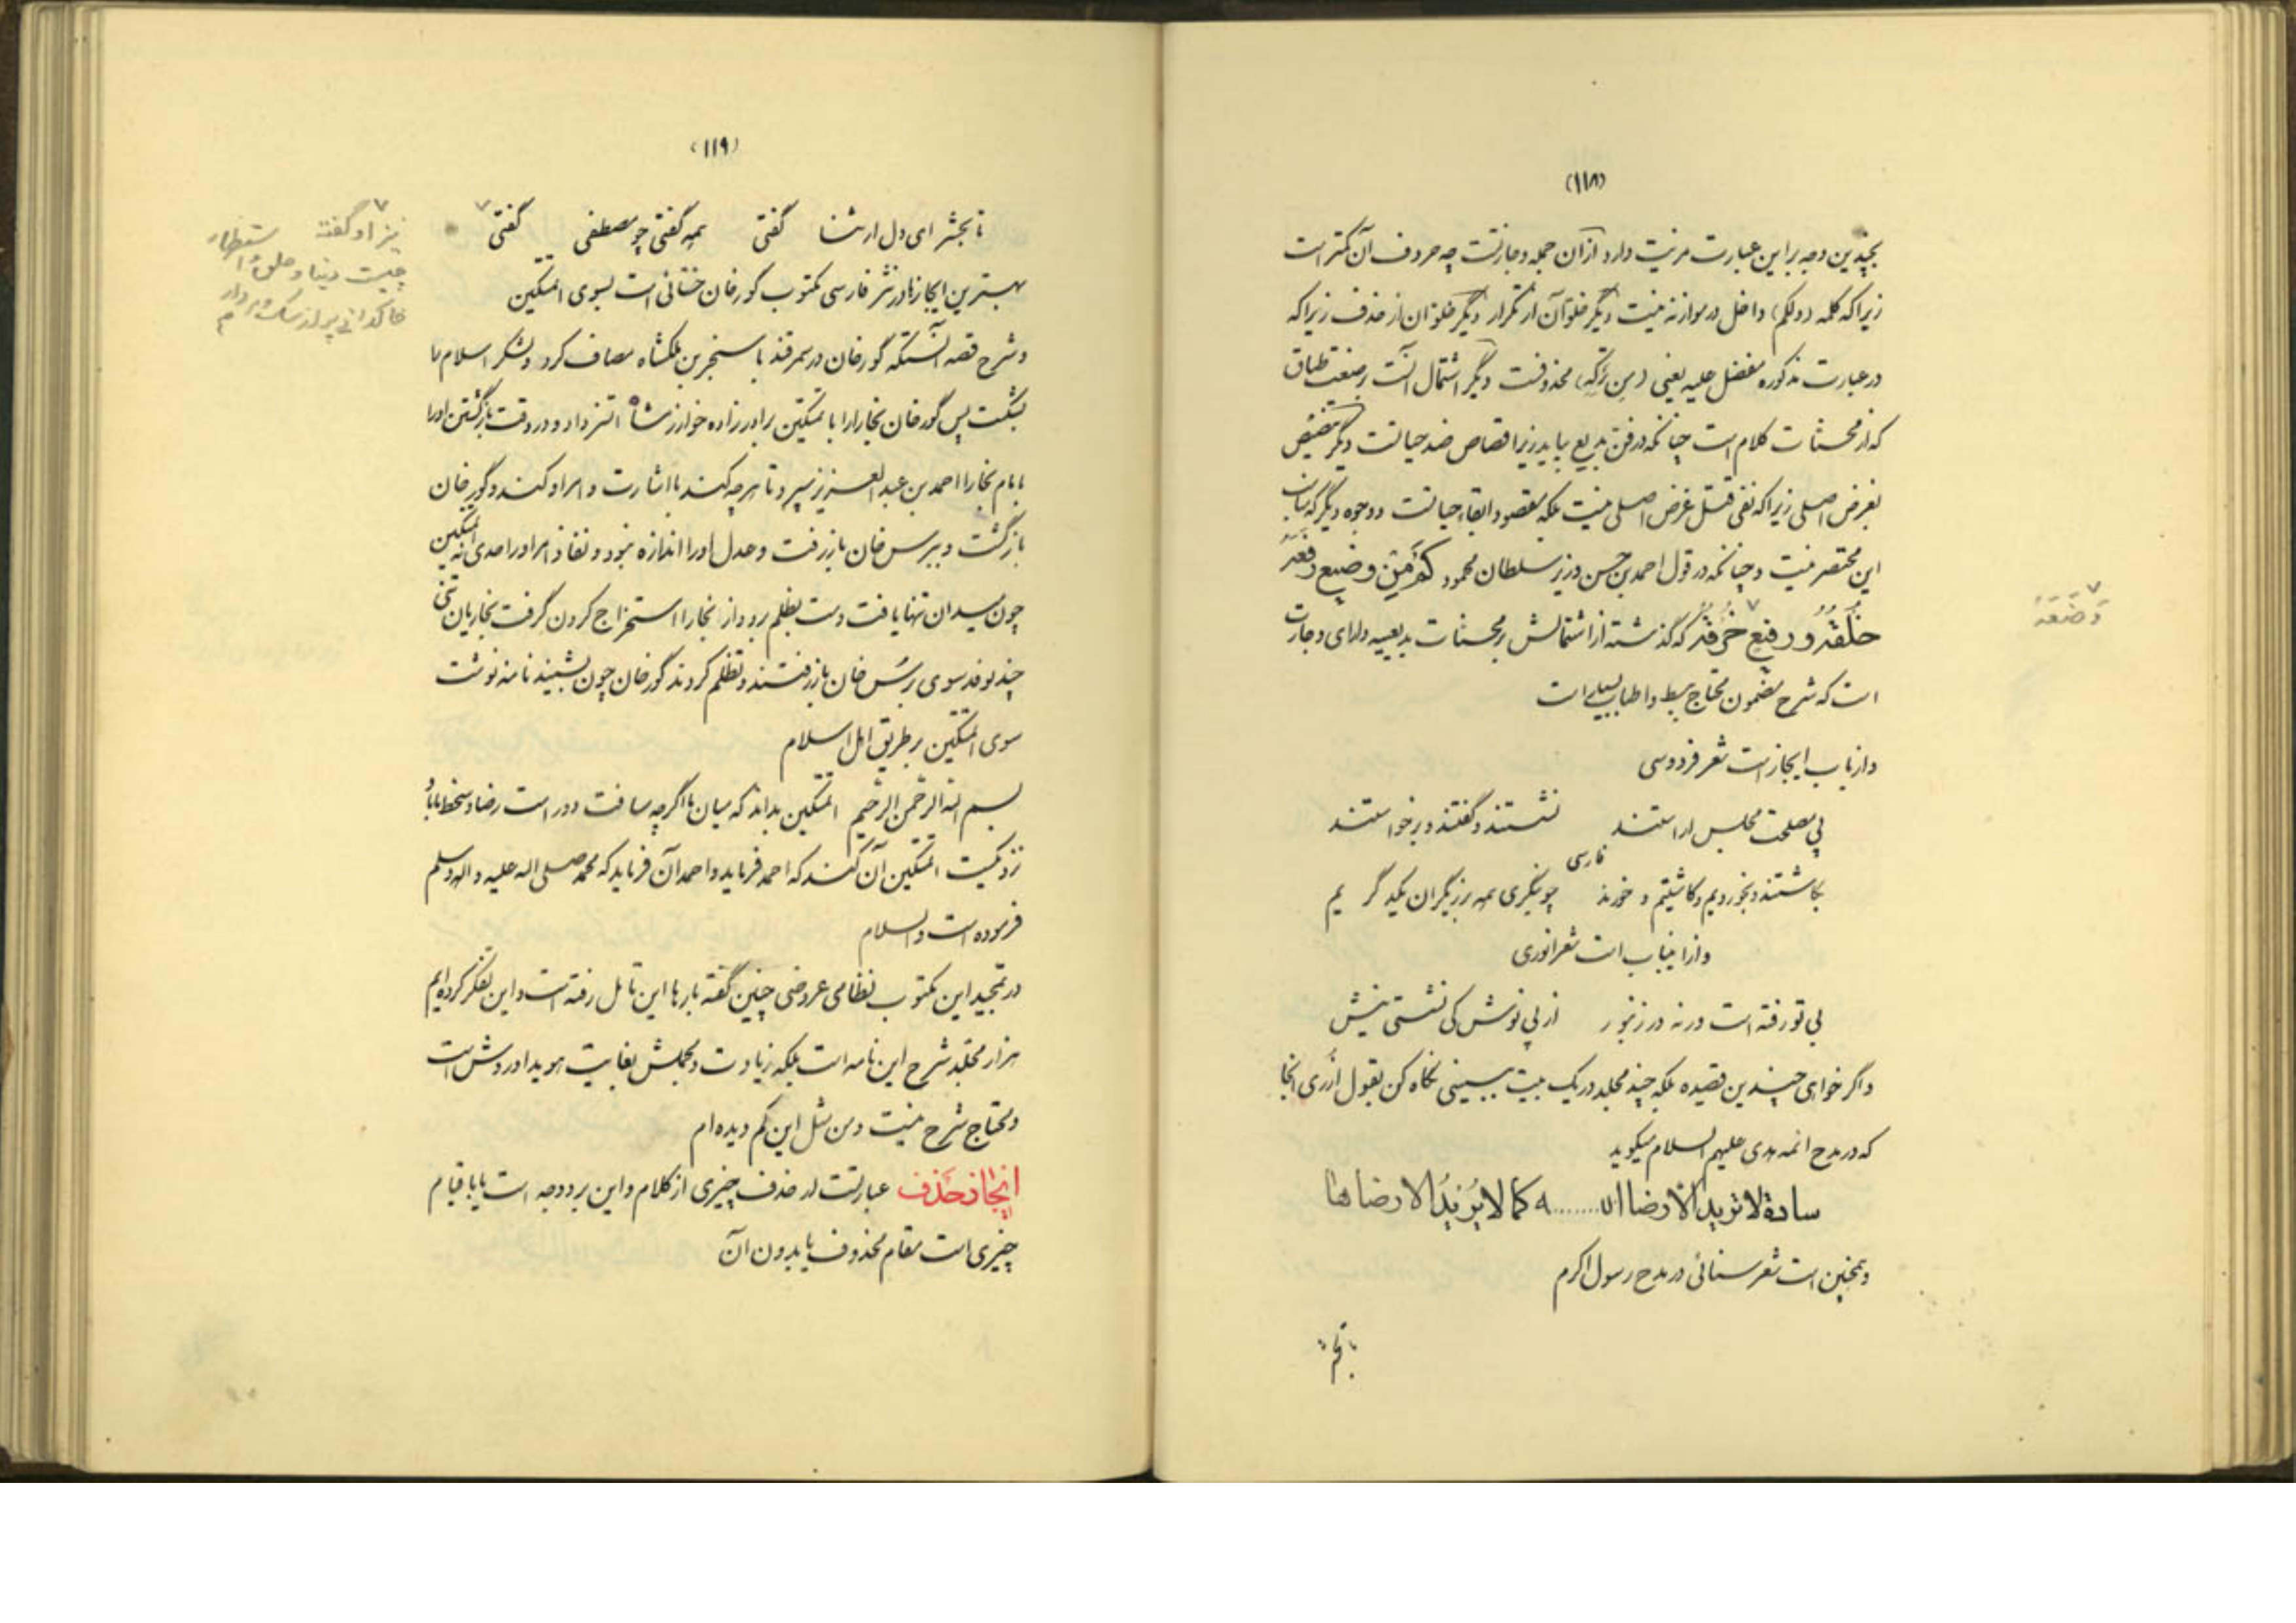 (۱۱۸)
بچندین وجه بر این عبارت مزیت دارد از آن جمله وجازتست چه حروف آن کمتر است
زیرا که کلمه (ولکم) داخل در موازنه نیست دیگر خلو آن از تکرار دیگر خلو آن از حذف زیرا که
در عبارت مذکوره مفضل علیه یعنی (من ترکه) محذوفست دیگر اشتمال آنست بر صنعت طباق
که از محسنات کلام است چنانکه در فن بدیع بیاید زیرا قصاص ضد حیاتست دیگر تنصیص
بغرض اصلی زیرا که نفی قتل غرض اصلی نیست بلکه مقصود ابقاء حیاتست و وجوه دیگر که بیان
این مختصر نیست و چنانکه در قول احمد بن حسن وزیر سلطان محمود کم من وضیع رفعه
خلقه و رفیع خرقه که گذشته از اشتمالش بر محسنات بدیعیه دارای وجازت
وضعه
است که شرح مضمون محتاج ببسط و اطناب است
و از باب ایجاز است شعر فردوسی
پی مصلحت مجلس اراستند نشستند و گفتند و برخواستند
فارسی
بکاشتند و بخوردیم و کاشتیم و خورند چو بنگری همه برزیگران یکدیگر یم
و از اینباب است شعر انوری
بی تو رفته است ورنه در زنبور از پی نوش کی نشستی نیش
و اگر خواهی چندین قصیده بلکه چند مجلد در یک بیت ببینی نگاه کن بقول ازری آنجا
که در مدح ائمه هدی علیهم السلام میگوید
سادة لا ترید الا رضا الله کما لا یرید الا رضاها
و همچنین است شعر سنائی در مدح رسول اکرم
(۱۱۹)
تا بحشر ای دل ار ثنا گفتی همه گفتی چو مصطفی گفتی
نیز او گفته
چیست دنیا و خلق و استظهار
خاکدانی پر از سگ و مردار
بهترین ایجازها در نثر فارسی مکتوب گورخان ختائی است بسوی اتمتکین
و شرح قصه آنستکه گورخان در سمرقند با سنجر بن ملکشاه مصاف کرد و لشکر اسلام را
بشکست پس گورخان بخارا را با تمتکین برادرزاده خوارزمشاه اتسز داد و در وقت بازگشتن او را
بامام بخارا احمد بن عبدالعزیز سپرد تا هرچه کند باشارت و امر او کند و گورخان
بازگشت و ببرسخان باز رفت و عدل او را اندازه نبود و نفاذ امر او را حدی نه اتمتکین
چون میدان تنها یافت دست بظلم برد و از بخارا استخراج کردن گرفت بخاریان تنی
چند بوفد سوی برسخان باز رفتند و تظلم کردند گورخان چون بشنید نامه نوشت
سوی اتمتکین بر طریق اهل اسلام
بسم الله الرحمن الرحیم اتمتکین بداند که میان ما اگرچه مسافت دور است رضا و سخط ما باو
نزدیکست اتمتکین آن کند که احمد فرماید و احمد آن فرماید که محمد صلی الله علیه و اله و سلم
فرموده است و السلام
در تمجید این مکتوب نظامی عروضی چنین گفته بارها این تامل رفته است و این تفکر کرده‌ایم
هزار مجلد شرح این نامه است بلکه زیادت و مجملش بغایت هویدا و روشن است
و محتاج شرح نیست و من مثل این کم دیده ام
ایجاز حذف عبارتست از حذف چیزی از کلام و این بر دو وجه است یا با قیام
چیزی است مقام محذوف یا بدون آن